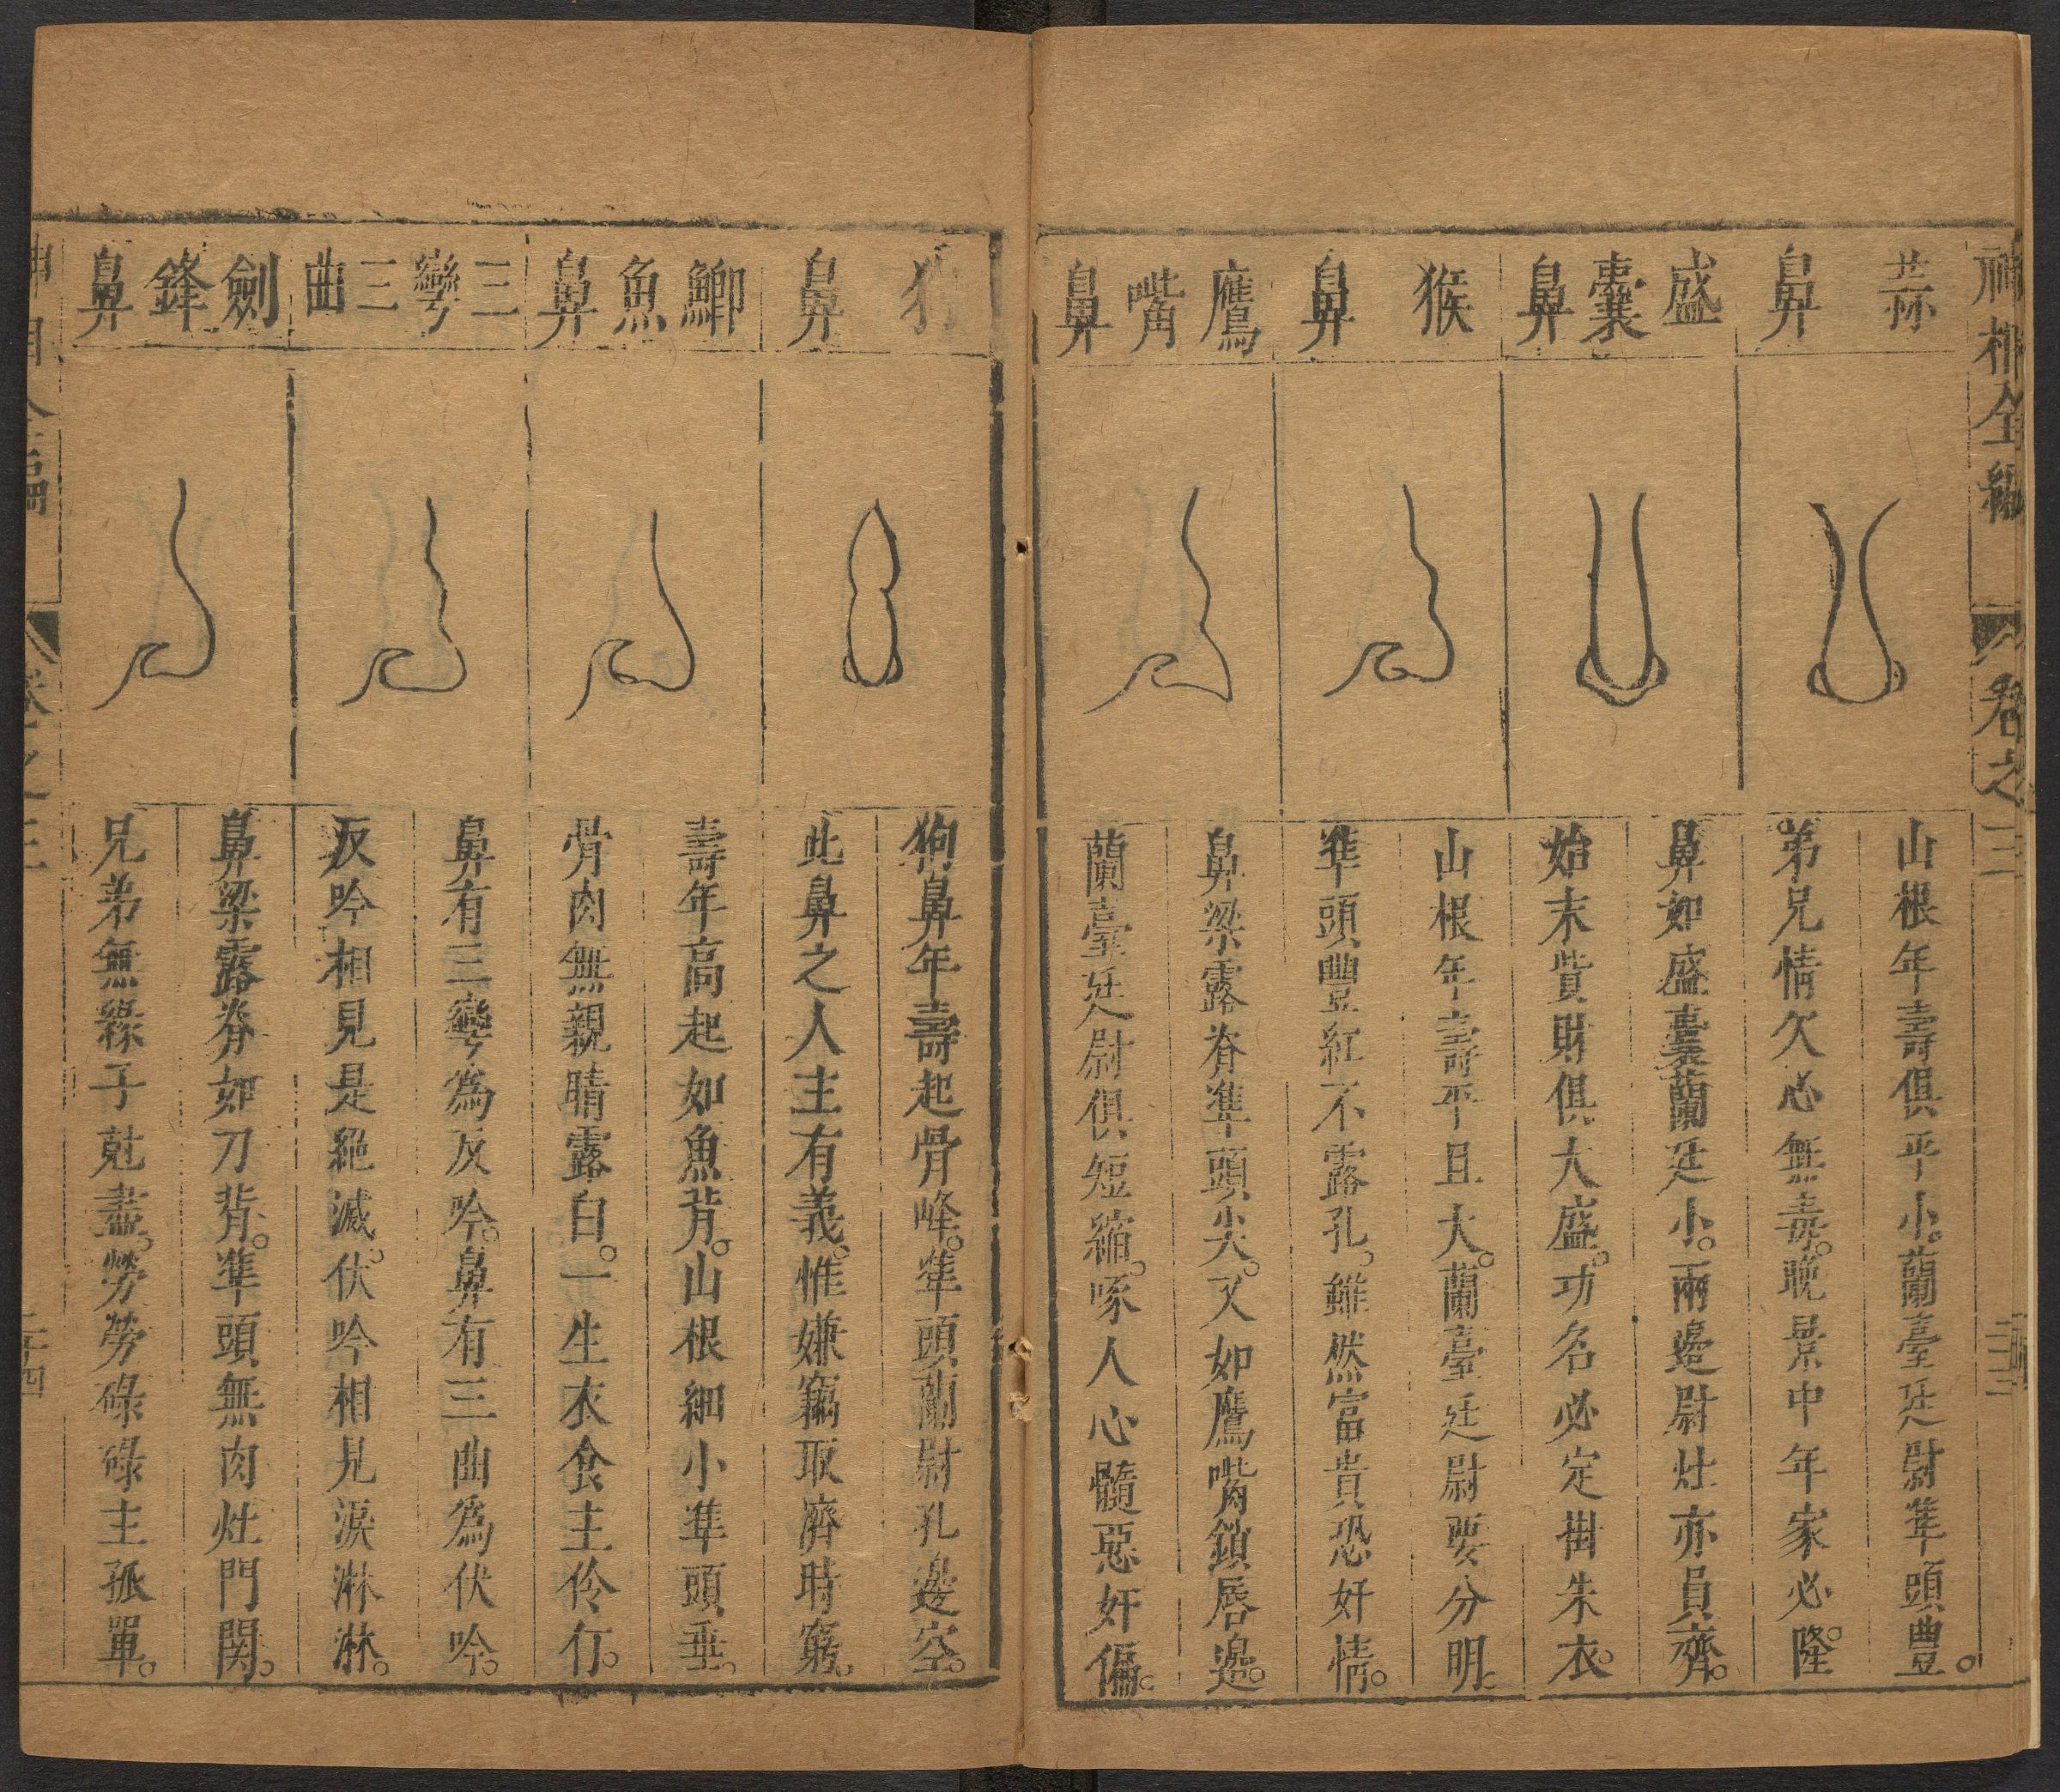 神相全編 卷之三
蒜鼻
山根年壽俱平小。蘭臺廷尉準頭豊。
弟兄情欠心無毒。晚景中年家必隆。
盛囊鼻
鼻如盛囊蘭廷小。兩邉尉灶亦員齊。
始末貲財俱大盛。功名必定掛朱衣。
猴鼻
山根年壽平且大。蘭臺廷尉要分明。
準頭豐紅不露孔。雖然富貴恐奸情。
鷹嘴鼻
鼻梁露脊準頭尖。又如鷹嘴鎖唇邉。
蘭臺廷尉俱短縮。啄人心髓惡奸偏。
鼻
狗鼻年壽起骨峰。準頭蘭尉孔邊空。
此鼻之人主有義。惟嫌竊取濟時窮。
鯽魚鼻
壽年高起如魚背。山根細小準頭垂。
骨肉無親睛露白。一生衣食主伶仃。
三彎三曲
鼻有三彎為反吟。鼻有三曲爲伏吟。
反吟相見是絕滅。伏吟相見淚淋淋。
劍鋒鼻
鼻梁露脊如刀背。準頭無肉灶門関。
兄弟無緣子尅盡。勞勞碌碌主孤單。
卷之三